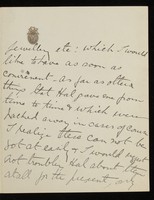 jewellery etc: which I would
like to have as soon as
convenient. as far as other
things that Hal gave me from
time to time & which were
packed away in cases of course
I realize these can not be
got at early & I would not
trouble Hal about them
at all for the present, only